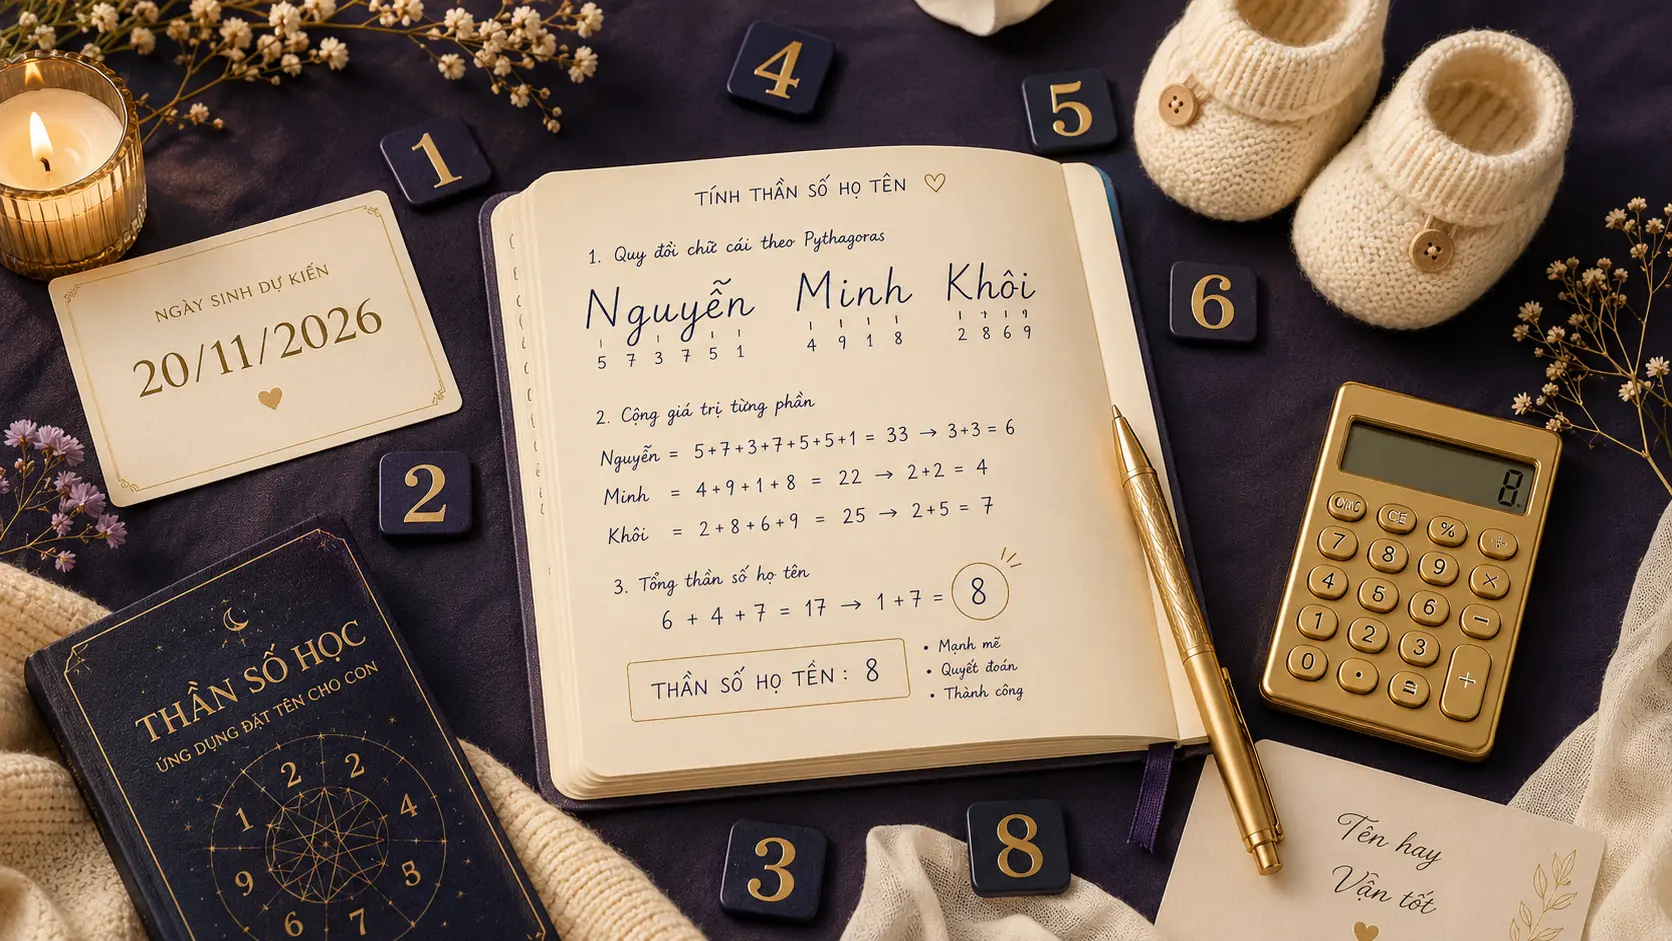 4
5
1
6
2
3
8
NGÀY SINH DỰ KIẾN
20/11/2026
TÍNH THẦN SỐ HỌ TÊN
1. Quy đổi chữ cái theo Pythagoras
Nguyễn Minh Khôi
5 7 3 7 5 1 4 9 1 8 2 8 6 9
2. Cộng giá trị từng phần
Nguyễn = 5+7+3+7+5+5+1 = 33 → 3+3 = 6
Minh = 4+9+1+8 = 22 → 2+2 = 4
Khôi = 2+8+6+9 = 25 → 2+5 = 7
3. Tổng thần số họ tên
6 + 4 + 7 = 17 → 1+7 = 8
THẦN SỐ HỌ TỀN: 8
• Mạnh mẽ
• Quyết đoán
• Thành công
THẦN SỐ HỌC
ỨNG DỤNG ĐẶT TÊN CHO CON
2 2
1 4
9 5
6 7
8.
CE %
7 8 9 ×
4 5 6 −
1 2 3 +
0 .
Tên hay
Vận tốt